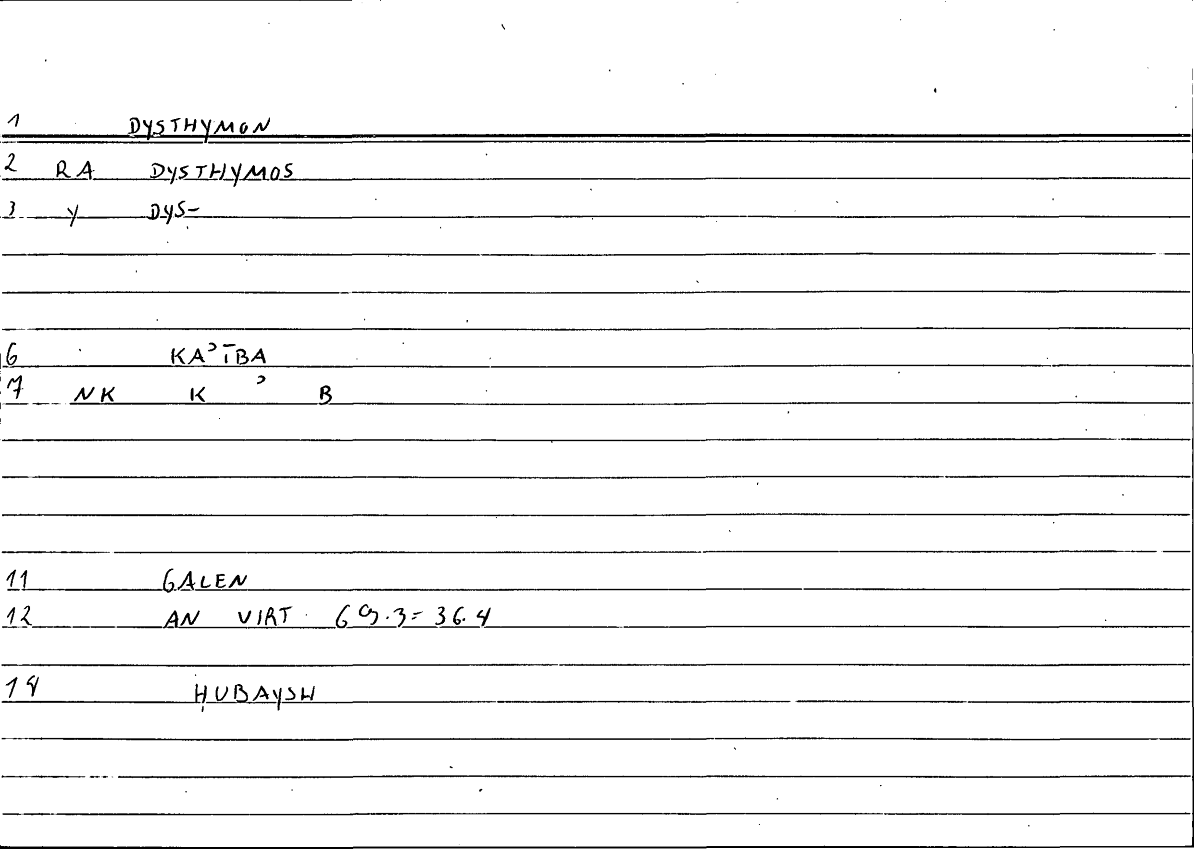 1 DYSTHYMON
2 RA DYSTHYMOS
3 Y DYS-
6 KAʾĪBA
7 NK K ʾ B
11 GALEN
12 AN VIRT. 69.3=36.4
14 ḤUBAYSH